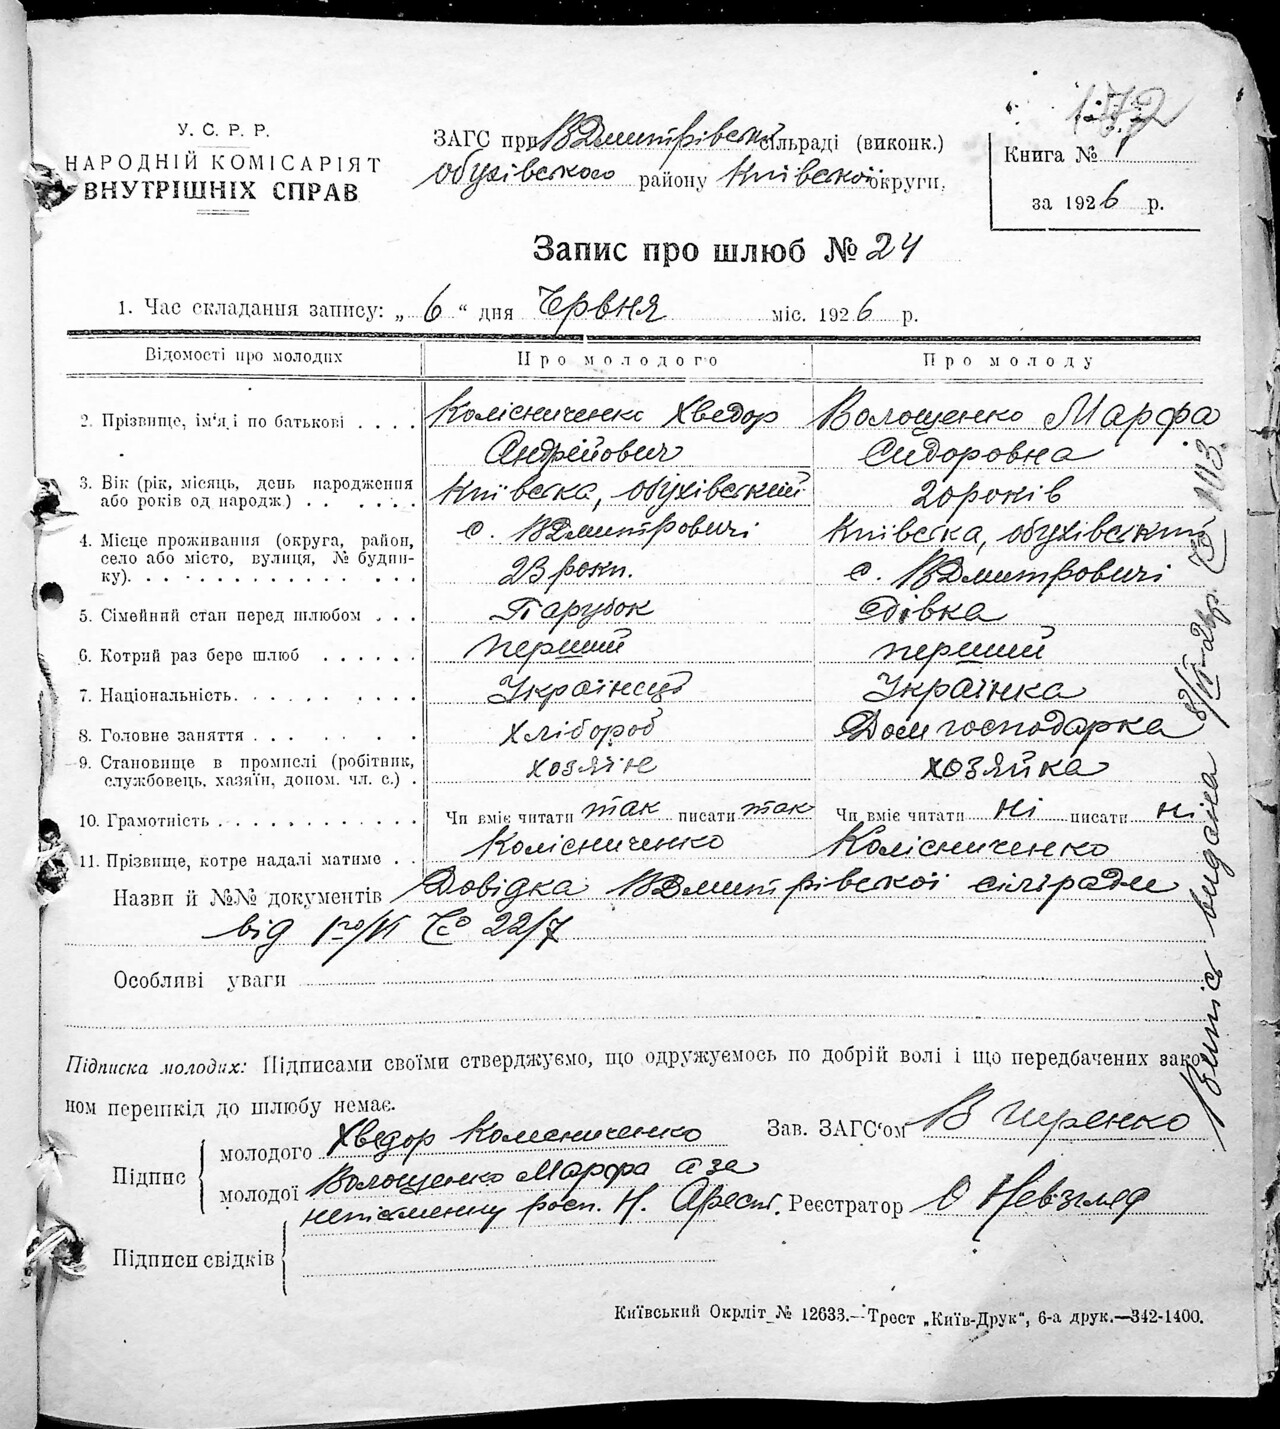 172
У. С. Р. Р.
НАРОДНІЙ КОМІСАРІЯТ
ВНУТРІШНІХ СПРАВ
ЗАГС при ВДмитрівській сільраді (виконк.)
обухівського району Київської округи.
Книга № 1
за 1926 р.
Запис про шлюб № 24
1. Час складання запису: „ 6 “ дня Червня міс. 1926 р.
Відомості про молодих Про молодого Про молоду
2. Прізвище, ім'я і по батькові . . . . Колісниченко Хведор Волощенко Марфа
Андрійович Сидоровна
3. Вік (рік, місяць, день народження Київська, обухівський 20 років
або років од народж.) . . . . . .
4. Місце проживання (округа, район, с. ВДмитровичі Київська, обухівський
село або місто, вулиця, № будин-
ку). . . . . . . . . . . . . . . 23 роки. с. ВДмитровичі
5. Сімейний стан перед шлюбом . . . Парубок Дівка
6. Котрий раз бере шлюб . . . . . . перший перший
7. Національність. . . . . . . . . . Українець Українка
8. Головне заняття . . . . . . . . хлібороб Домгосподарка
9. Становище в промислі (робітник, хозяїн хозяйка
службовець, хазяїн, допом. чл. с.) .
10. Грамотність . . . . . . . . . . . . Чи вміє читати так писати так Чи вміє читати ні писати ні
11. Прізвище, котре надалі матиме . . Колісниченко Колісниченко
Назви й №№ документів Довідка ВДмитрівської сілради
від 1го/VI № 22/7
Особливі уваги
Підписка молодих: Підписами своїми стверджуємо, що одружуємось по добрій волі і що передбачених зако-
ном перешкід до шлюбу немає.
Підпис
молодого Хведор Колесниченко
Зав. ЗАГС‘ом
молодої Волощенко Марфа а за
неписьменну росп. Н.
Реєстратор О Невзгляд
Підписи свідків
Витіс видана 8/VI-26р. № 113.
Київський Окрліт № 12633.—Трест „Київ-Друк“, 6-а друк.—342-1400.